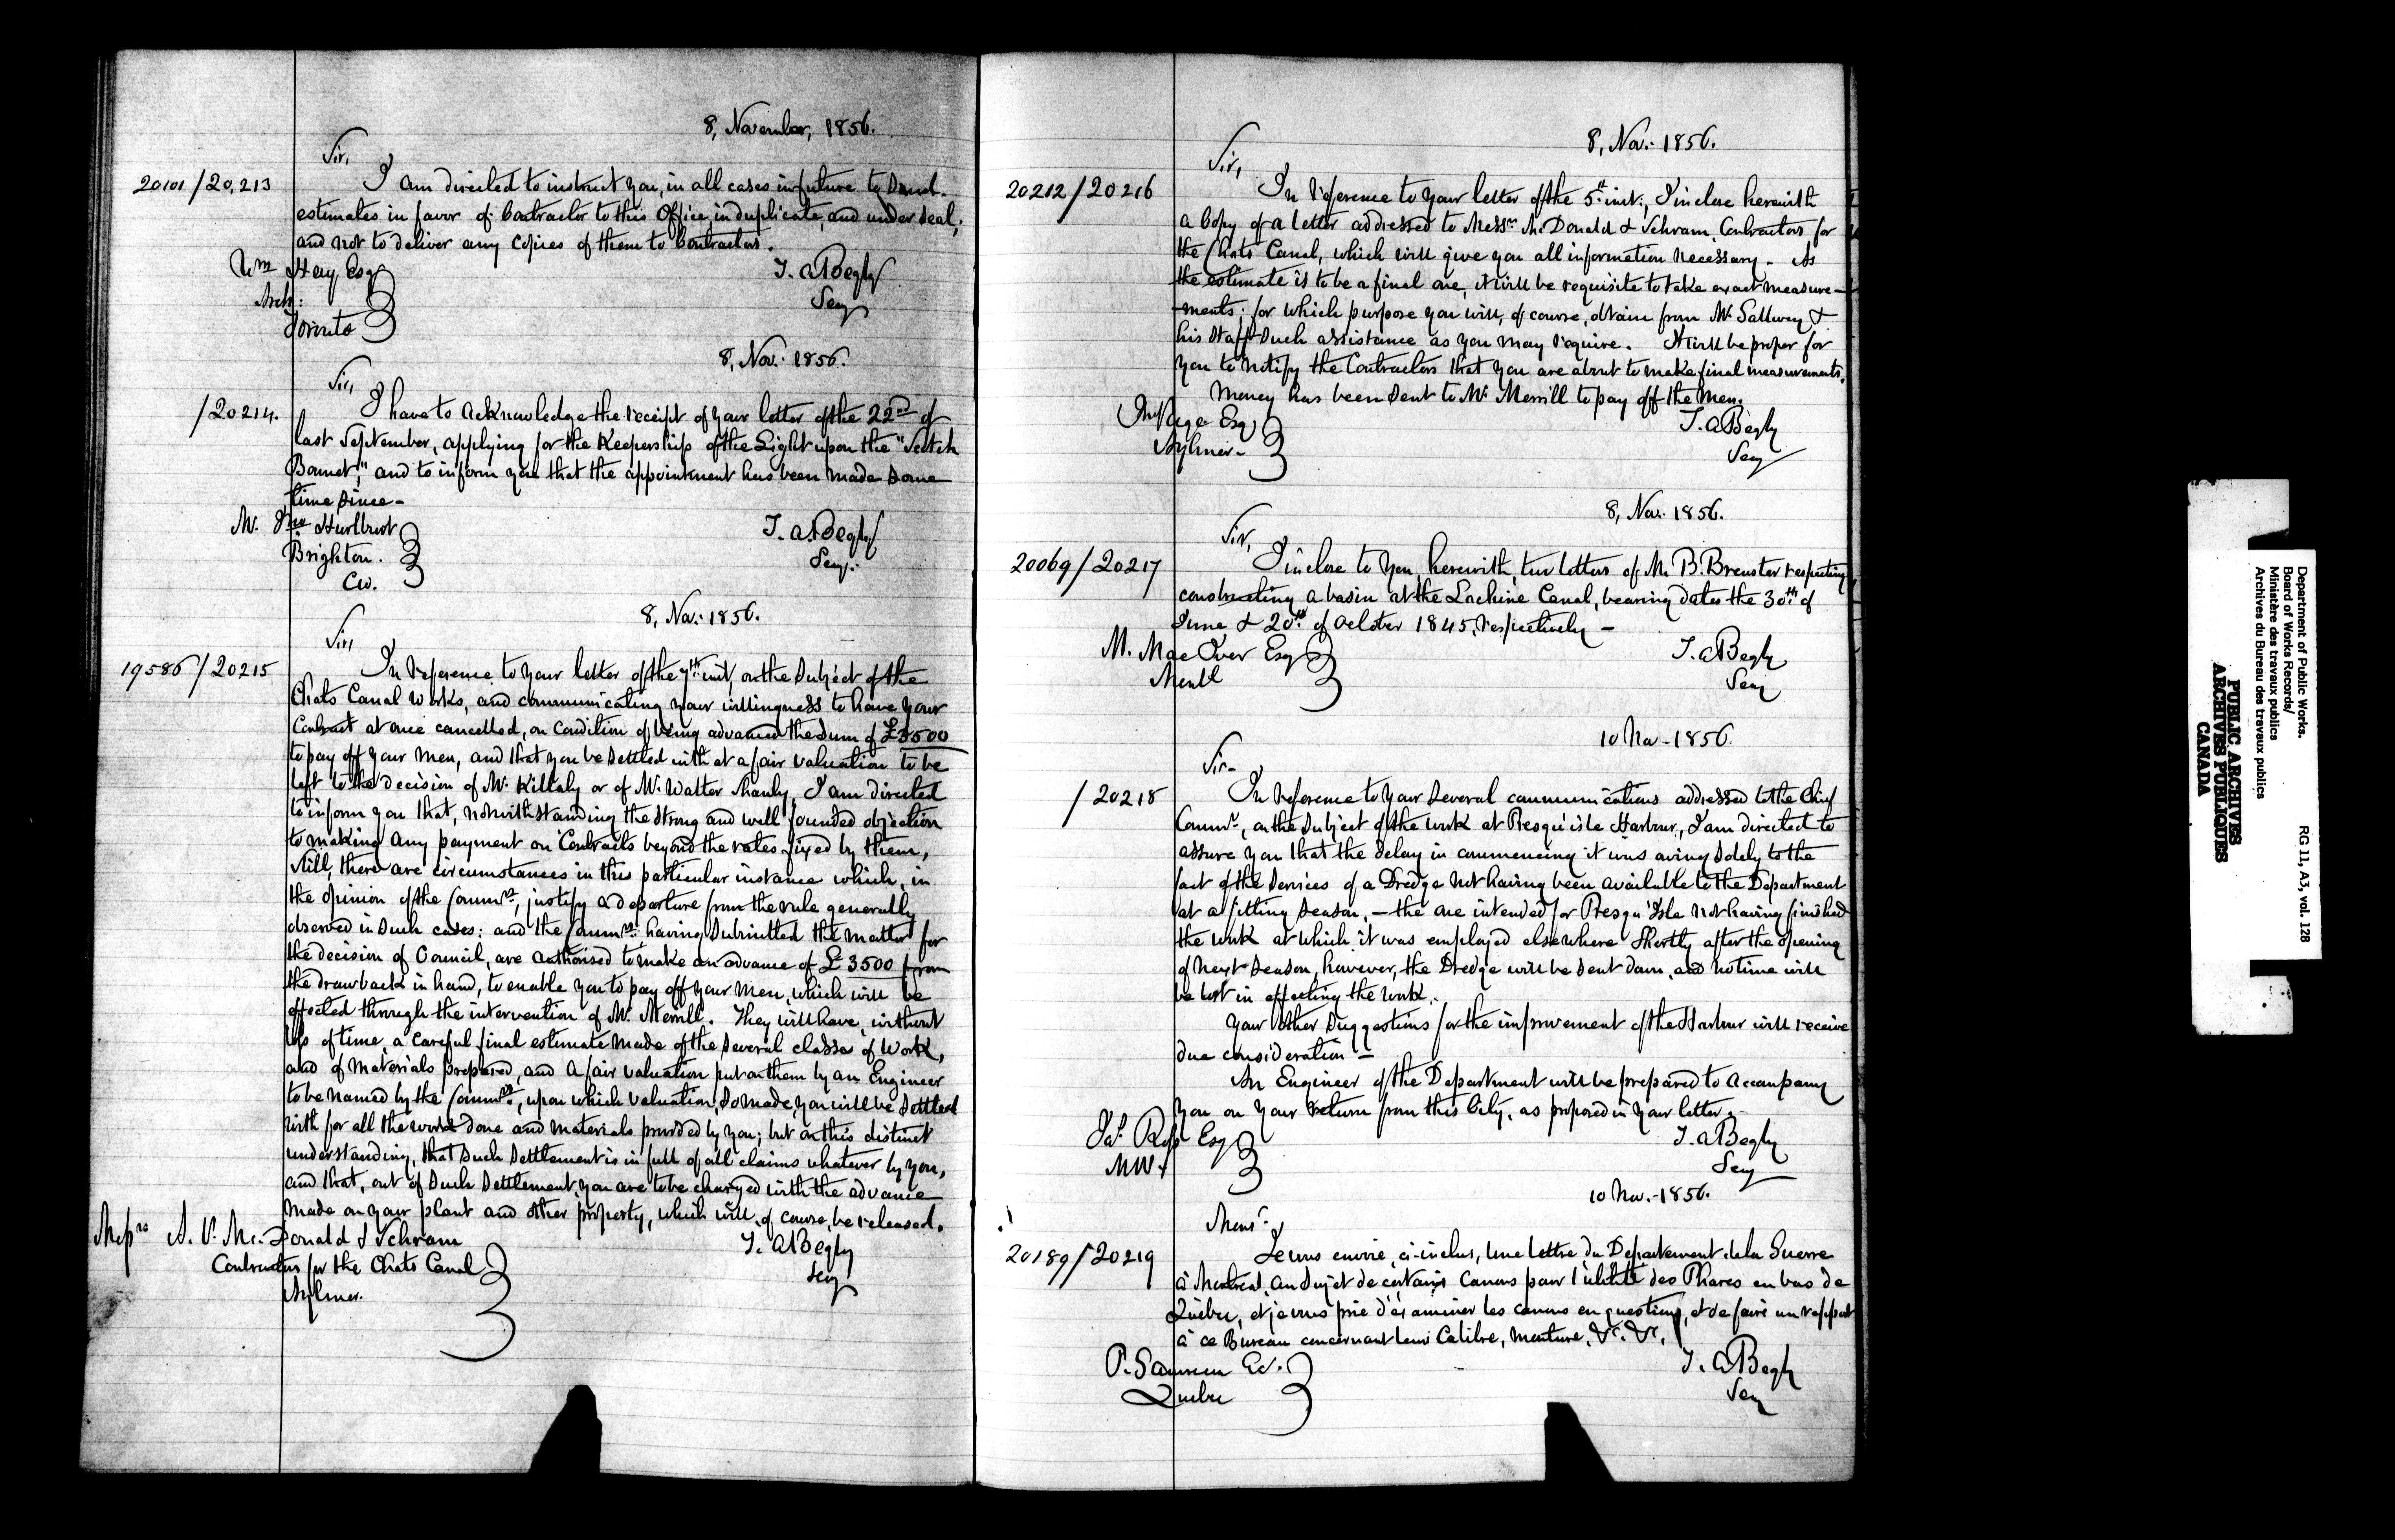 8, November, 1856.
Sir,
20101/20,213
I am directed to instruct you, in all cases in future to Send
estimates in favor of Contractor to this Office, in duplicate, and under Seal,
and not to deliver any Copies of them to Contractors.
Wm Hay Esq
T. A Begly
Arch:
Secy
Toronto
8, Nov: 1856.
Sir,
/20214.
I have to acknowledge the receipt of your letter of the 22nd of
last September, applying for the Keepership of the Light upon the "Scotch
Bonnet," and to inform you that the appointment has been made some
time since-
M. Jno Hurlburt
T. A Begly
Brighton.
Secy:
CW.
8, Nov: 1856.
Sir,
19586/20215
In reference to your letter of the 7th inst, on the Subject of the
Chats Canal Works, and communicating your willingness to have your
Contract at once cancelled, on Condition of being advanced the Sum of £3500
to pay off your Men, and that you be Settled with at a fair valuation to be
left to the decision of Mr. Killaly or of Mr. Walter Shanly, I am directed
to inform you that, notwithstanding the strong and well founded objection
to making any payment on Contracts beyond the rates fixed by them,
still, there are circumstances in this particular instance which, in
the opinion of the Commrs, justify a departure from the rule generally
observed in Such cases: and the Commrs: having Submitted the matter for
the decision of Council, are authorised to make an advance of £3500 from
the drawback in hand, to enable you to pay off your Men, which will be
effected through the intervention of Mr. Merrill. They will have, without
loss of time, a careful final estimate made of the several classes of Work,
and of Materials prepared, and a fair valuation put on them by an Engineer
to be named by the Commrs, upon which valuation, So made, you will be Settled
with for all the work done and materials provided by you; but on this distinct
understanding, that Such Settlement is in full of all claims whatever by you,
and that, out of Such Settlement, you are to be charged with the advance
made on your plant and other property, which will, of course, be released.
Messrs A. P. Mc.Donald & Schram
T. A Begly
Contractors for the Chats Canal
Secy
Aylmer.
8, Nov: 1856.
Sir,
20212/20216
In reference to your letter of the 5th inst:, I inclose herewith
a Copy of a letter addressed to Messrs McDonald & Schram, Contractors for
the Chats Canal, which will give you all information necessary- As
the estimate is to be a final one, it will be requisite to take exact measure-
-ments; for which purpose you will, of course, obtain from Mr Gallwey &
his Staff Such assistance as you may require. It will be proper for
you to notify the Contractors that you are about to make final measurements.
Money has been Sent to Mr Merrill to pay off the Men.
Jno Page Esq
T. A Begly
Aylmer-
Secy
8, Nov: 1856.
Sir,
20069/20217
I inclose to you, herewith, two letters of Mr B. Brewster respecting
constructing a basin at the Lachine Canal, bearing dates the 30th of
June & 20th of October 1845, respectively-
M. MacIver Esq
T. A Begly
Montl
Secy
10 Nov-1856.
Sir-
/20218
In reference to your Several communications addressed to the Chief
Commr, on the Subject of the work at Presqu'isle Harbour, I am directed to
assure you that the delay in commencing it was owing Solely to the
fact of the Services of a Dredge not having been available to the Department
at a fitting Season,- the one intended for Presqu'Isle not having finished
the work at which it was employed elsewhere Shortly after the opening
of next Season, however, the Dredge will be Sent down, and no time will
be lost in effecting the work.
Your other Suggestions for the improvement of the Harbour will receive
due consideration-
An Engineer of the Department will be prepared to accompany
you on your return from this City, as proposed in your letter.
Jas. Ross Esq
T. A Begly
Secy
10 Nov.-1856.
Monsr.
20189/20219
Je vous envoie, ci-inclus, une lettre du Département de la Guerre
à Montreal, au Sujet de certains Canons pour l'utilité des Phares en bas de
Québec, et je vous prie d'éxaminer les canons en question, et de faire un rapport
à ce Bureau concernant leur Calibre, monture, &c. &c,
T. A Begly
Quebec
Secy
Department of Public Works.
Board of Works Records/
Ministère des travaux publics
Archives du Bureau des travaux publics
RG 11, A3, vol. 128
PUBLIC ARCHIVES
ARCHIVES PUBLIQUES
CANADA